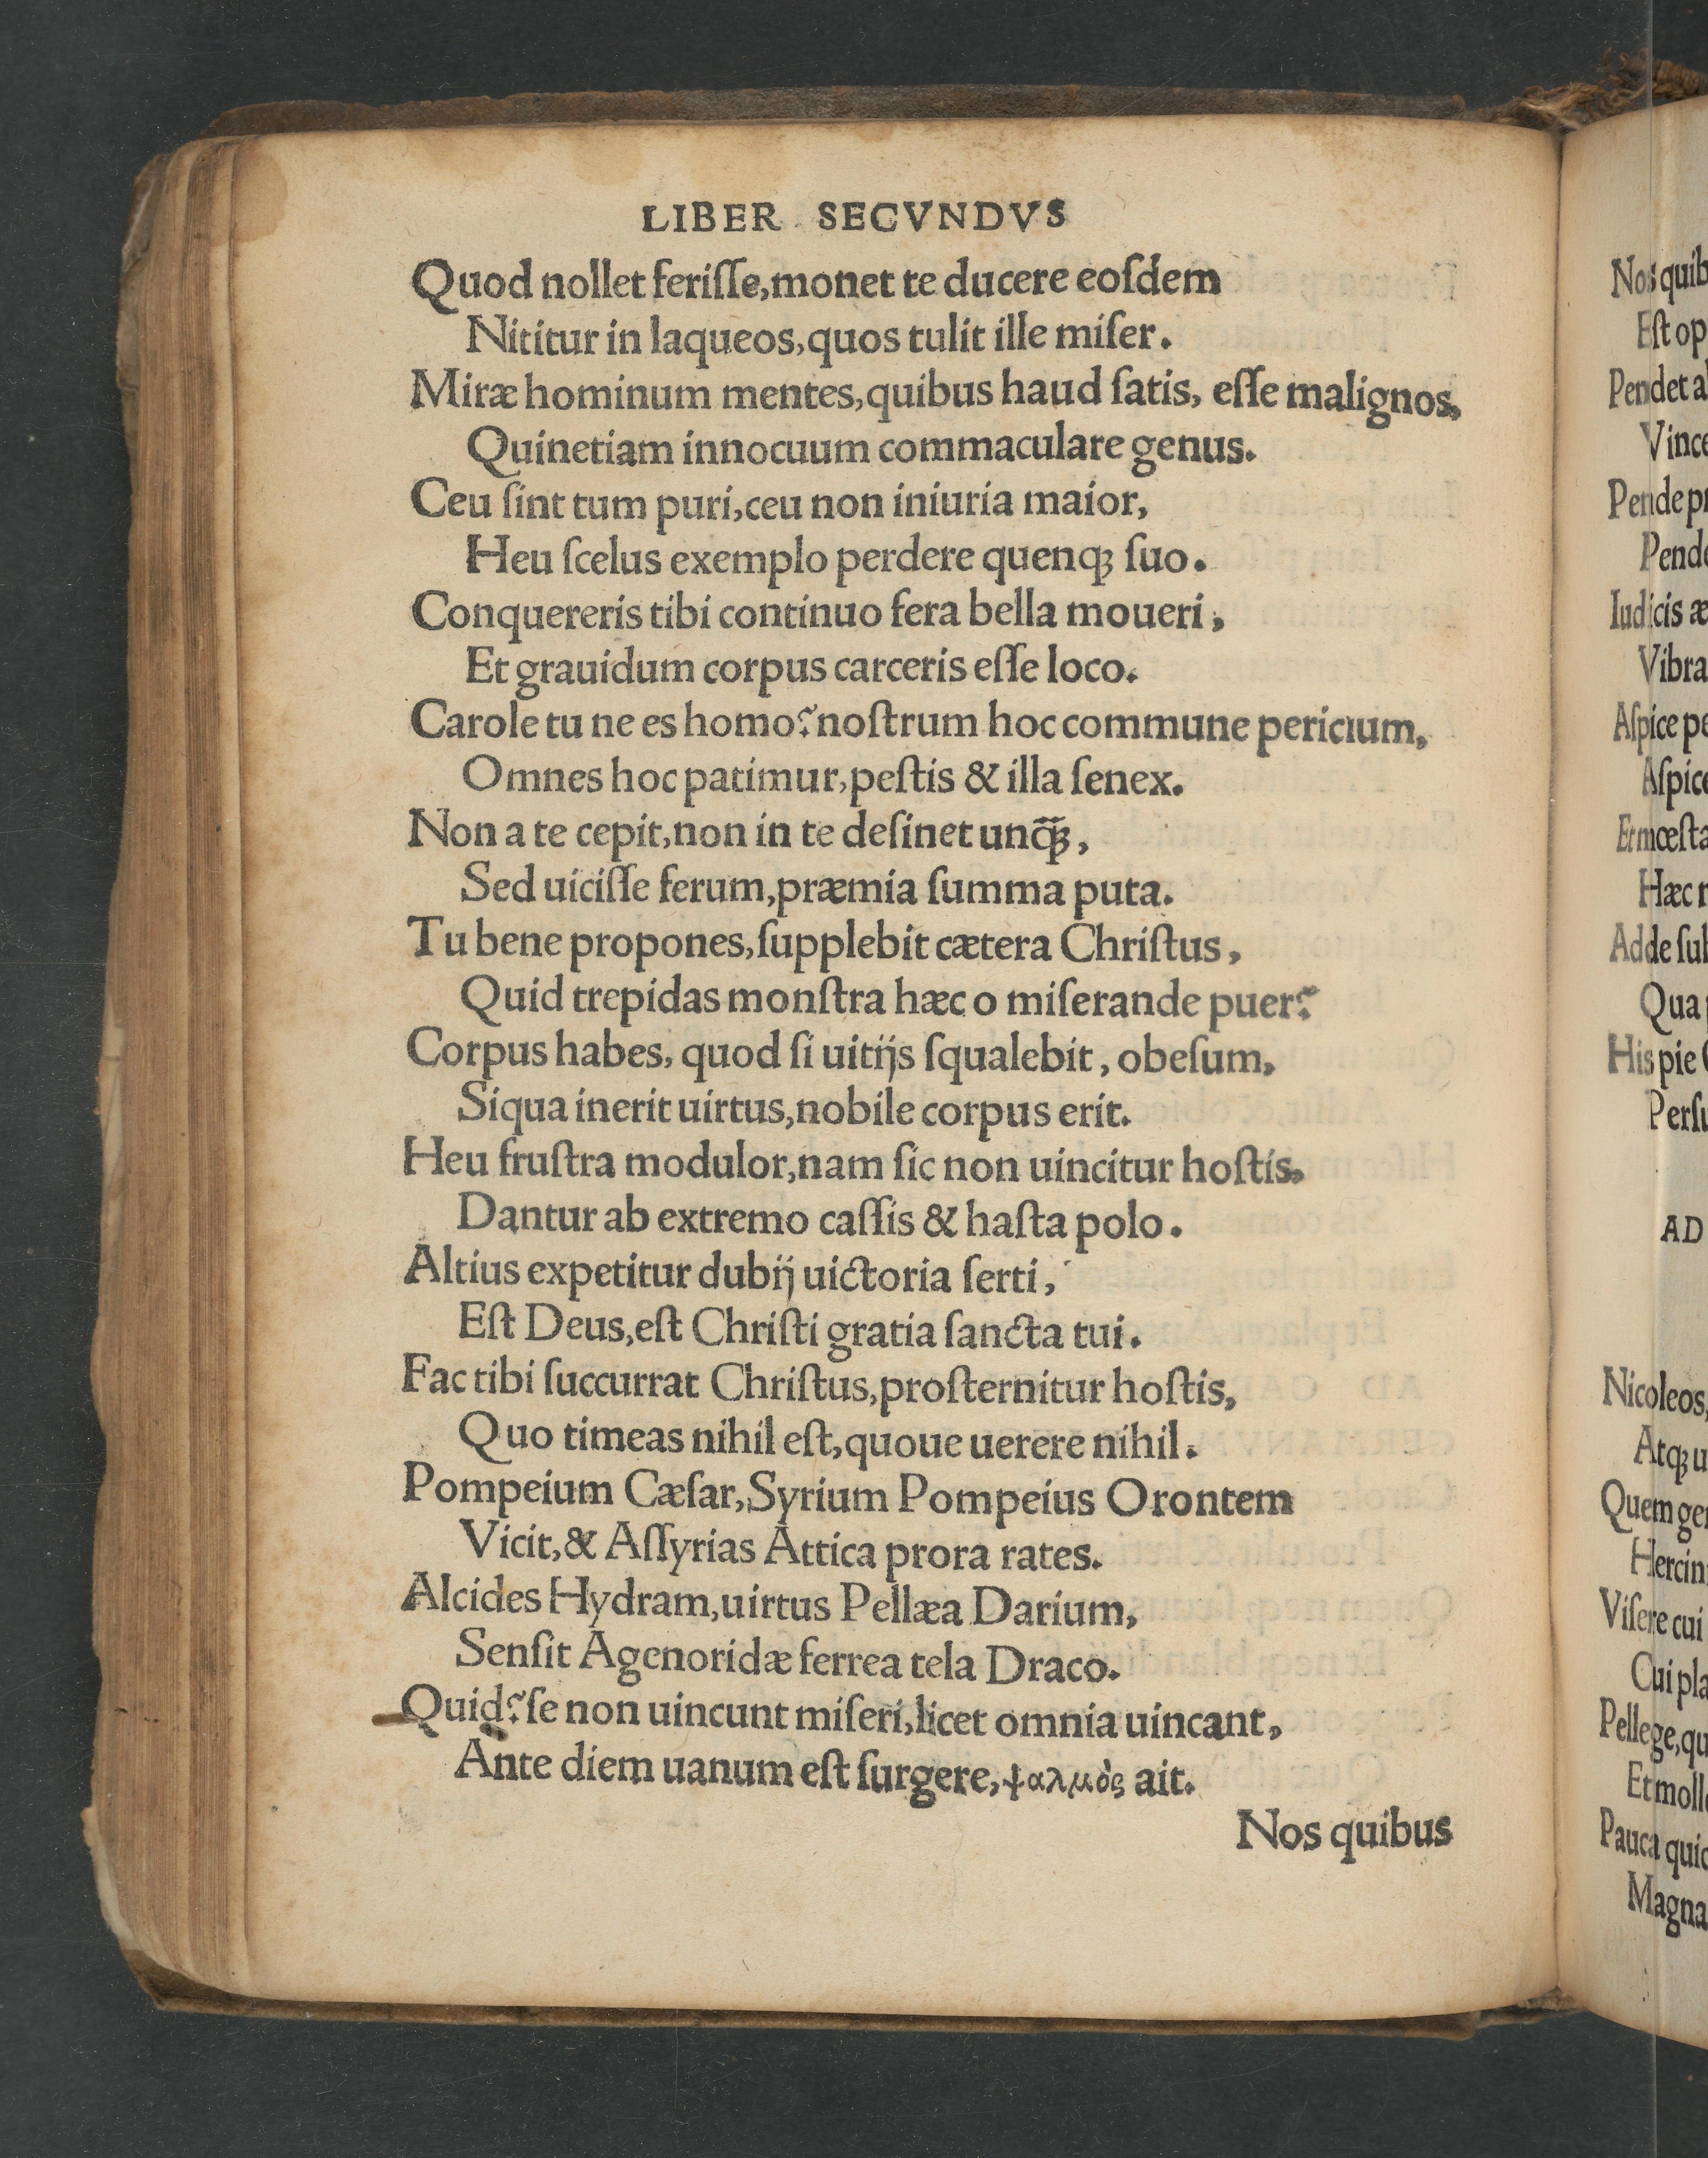 LIBER SECVNDVS
Quod nollet feriſſe,monet te ducere eoſdem
Nititur in laqueos,quos tulit ille miſer.
Miræ hominum mentes,quibus haud ſatis, eſſe malignos,
Quinetiam innocuum commaculare genus.
Ceu ſint tum puri,ceu non iniuria maior,
Heu ſcelus exemplo perdere quenqꝫ ſuo.
Conquereris tibi continuo fera bella moueri,
Et grauidum corpus carceris eſſe loco.
Carole tu ne es homo? noſtrum hoc commune periclum,
Omnes hoc patimur,peſtis & illa ſenex.
Non a te cepit,non in te deſinet unq̃ꝫ,
Sed uiciſſe ferum,præmia ſumma puta.
Tu bene propones,ſupplebit cætera Chriſtus,
Quid trepidas monſtra hæc o miſerande puer?
Corpus habes, quod ſi uitijs ſqualebit, obeſum,
Siqua inerit uirtus,nobile corpus erit.
Heu fruſtra modulor,nam ſic non uincitur hoſtis,
Dantur ab extremo caſſis & haſta polo.
Altius expetitur dubij uictoria ſerti,
Eſt Deus,eſt Chriſti gratia ſancta tui.
Fac tibi ſuccurrat Chriſtus,proſternitur hoſtis,
Quo timeas nihil eſt,quoue uerere nihil.
Pompeium Cæſar,Syrium Pompeius Orontem
Vicit,& Aſſyrias Attica prora rates.
Alcides Hydram,uirtus Pellæa Darium,
Senſit Agenoridæ ferrea tela Draco.
Quid? ſe non uincunt miſeri,licet omnia uincant,
Ante diem uanum eſt ſurgere, ψαλμὸς ait.
Nos quibus
Eſt
Vince
Pende
Iudicis
Aſpice
Hæc
Adde
Qua
His pie
AD
Nicoleos,
Atqꝫ
Quem
Viſere cui
Pellege,
Pauca
Magna